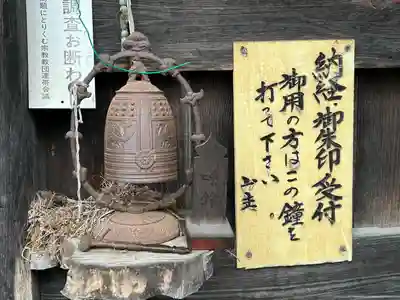 納経・御朱印受付
御用の方はこの鐘を
打って下さい。
山主
調査お断わ
願にとりくむ宗教教団連帯会議